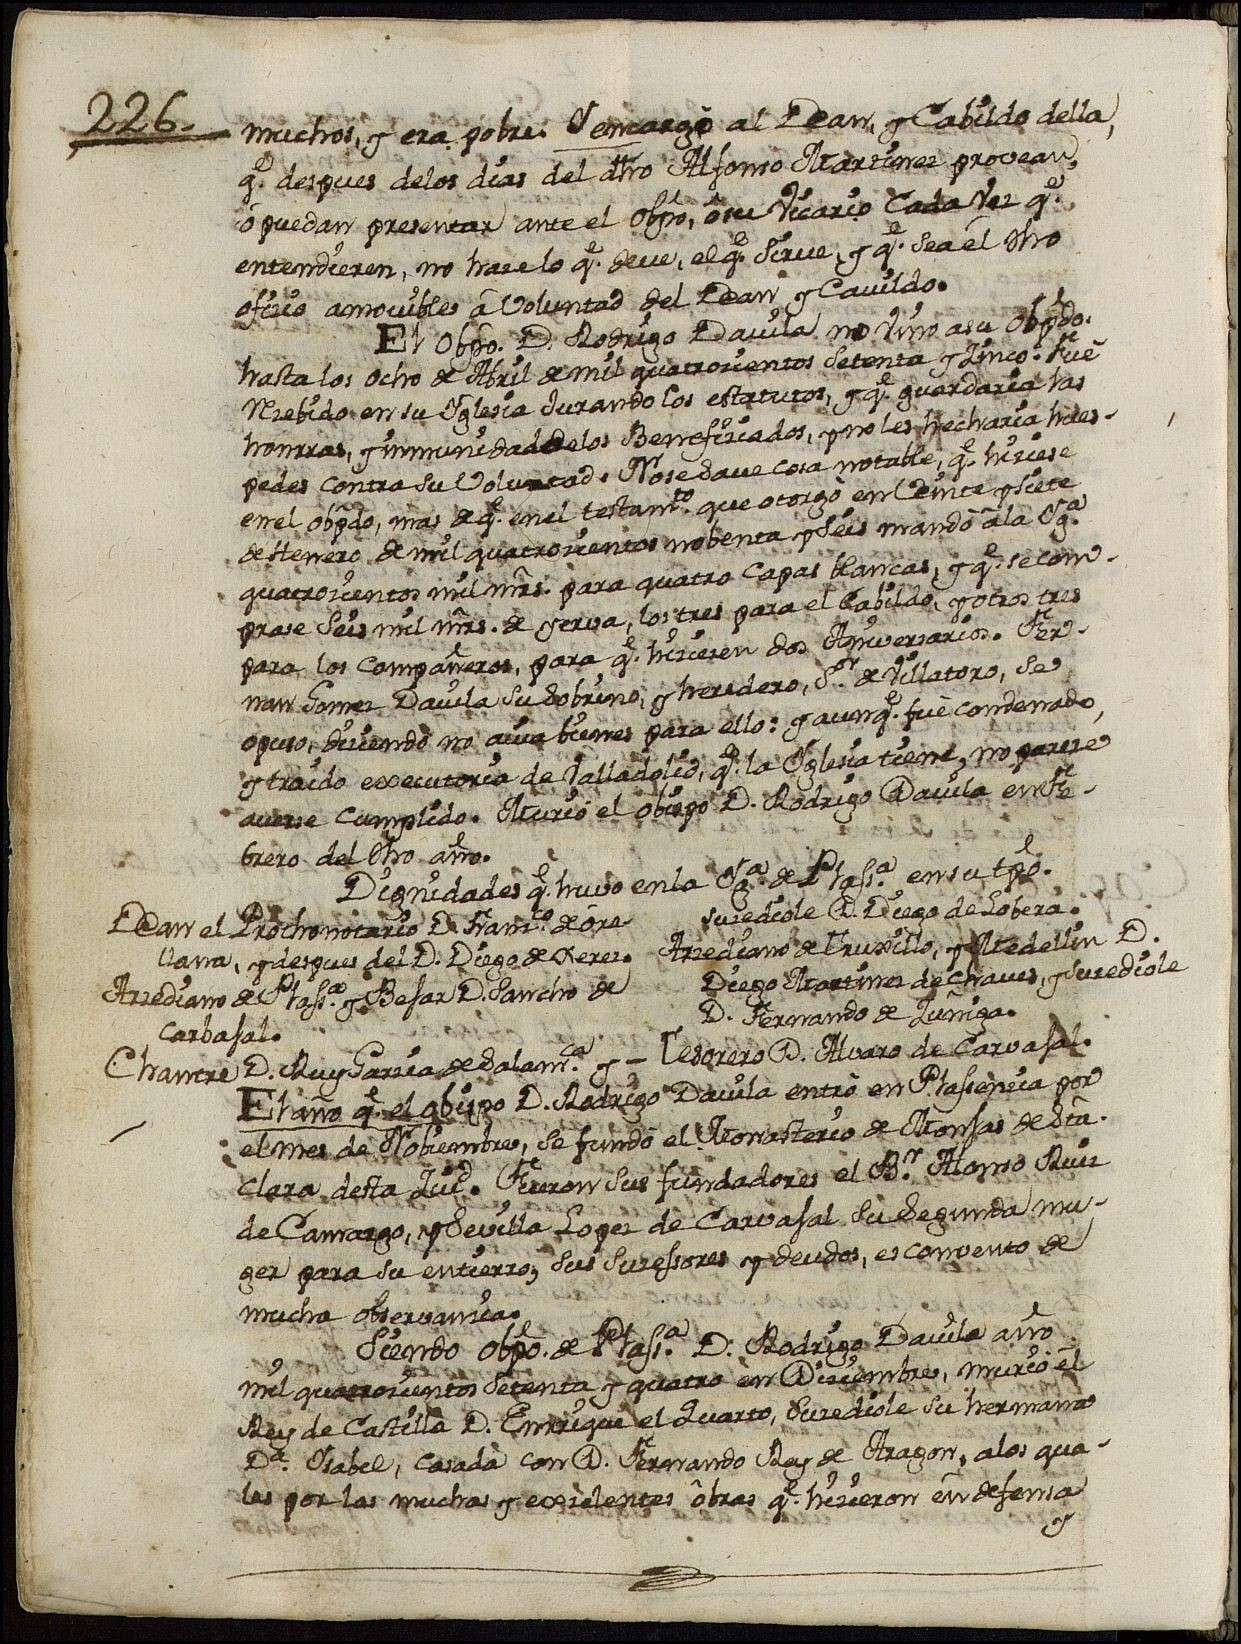 226.
muchos, y era pobre. Y encargó al Dean, y Cabildo della,
q.e despues delos dias del dho Alfonso Martinez provean,
ó puedan presentar ante el obpo, ô su Vicario Cada Vez q.e
entendieren, no hace lo q.e deve, el q.e sirve, y q.e sea él dho
oficio amovible à Voluntad del Dean y Cavildo.
El Obpo. D. Rodrigo Davila no vino asu obpdo.
hasta los ocho de Abril de mil quatrocientos setenta y Zinco. Fuè
Rrebido en su Yglesia Jurando los estatutos, y q.e guardaria las
honrras, y inmunidad delos Beneficiados, y no les hecharia hues-
pedes contra su Voluntad. No se save cosa notable, q.e hiciese
en el obpdo, mas de q.e en el testam.to que otorgò en Veinte y siete
de Henero de mil quatrocientos nobenta y seis mandò â la Yg.a
quatrocientos mil mrs. para quatro Capas blancas, y q.e se com-
prase seis mil mrs. de yerva, los tres para el Cabildo, y otros tres
para los compañeros, para q.e hiciesen dos Aniversarios. Fer-
nan Gomez Davila su Sobrino, y heredero, S.r de Villatoro, se
opuso, diciendo no avia bienes para ello: y aunq.e fuè condenado,
y traido executoria de Valladolid, q.e la Yglesia tiene, no parece
averse cumplido. Murió el obispo D. Rodrigo Davila en Fe-
brero del dho año.
Dignidades q.e huvo en la Yg.a de Plas.a en su tpo.
Dean el Prothonotario D. Fran.co de ôre-
llana, y despues del D. Diego de Xerez.
Arzediano de Plas.a y Bejar D. Sancho de
Carbajal.
Chantre D. Ruy Garzia de Salam.ca y-
suzediole D. Diego de Lobera.
Arzediano de Truxillo, y Medellin D.
Diego Martinez de Chaves, y suzediole
D. Fernando de Zuñiga.
Tesorero D. Alvaro de Carvajal.
El año q.e el obispo D. Rodrigo Davila entrò en Plasencia por
el mes de Nobiembre, se fundó el Monasterio de Monjas de Sta.
Clara desta Ziud. Fueron sus fundadores el B.r Alonso Ruiz
de Camargo, y Sevilla Lopez de Carvajal su Segunda mu-
ger para su entierro, sus Sucessores y deudos, es convento de
mucha observancia.
Siendo obpo. de Plas.a D. Rodrigo Davila año
mil quatrocientos setenta y quatro en Diciembre, murió el
Rey de Castilla D. Enrrique el Quarto, Suzediole su hermana
D.a Ysabel, casada con D. Fernando Rey de Aragon, alos qua-
les por las muchas y excelentes ôbras q.e hicieron en defensa
y